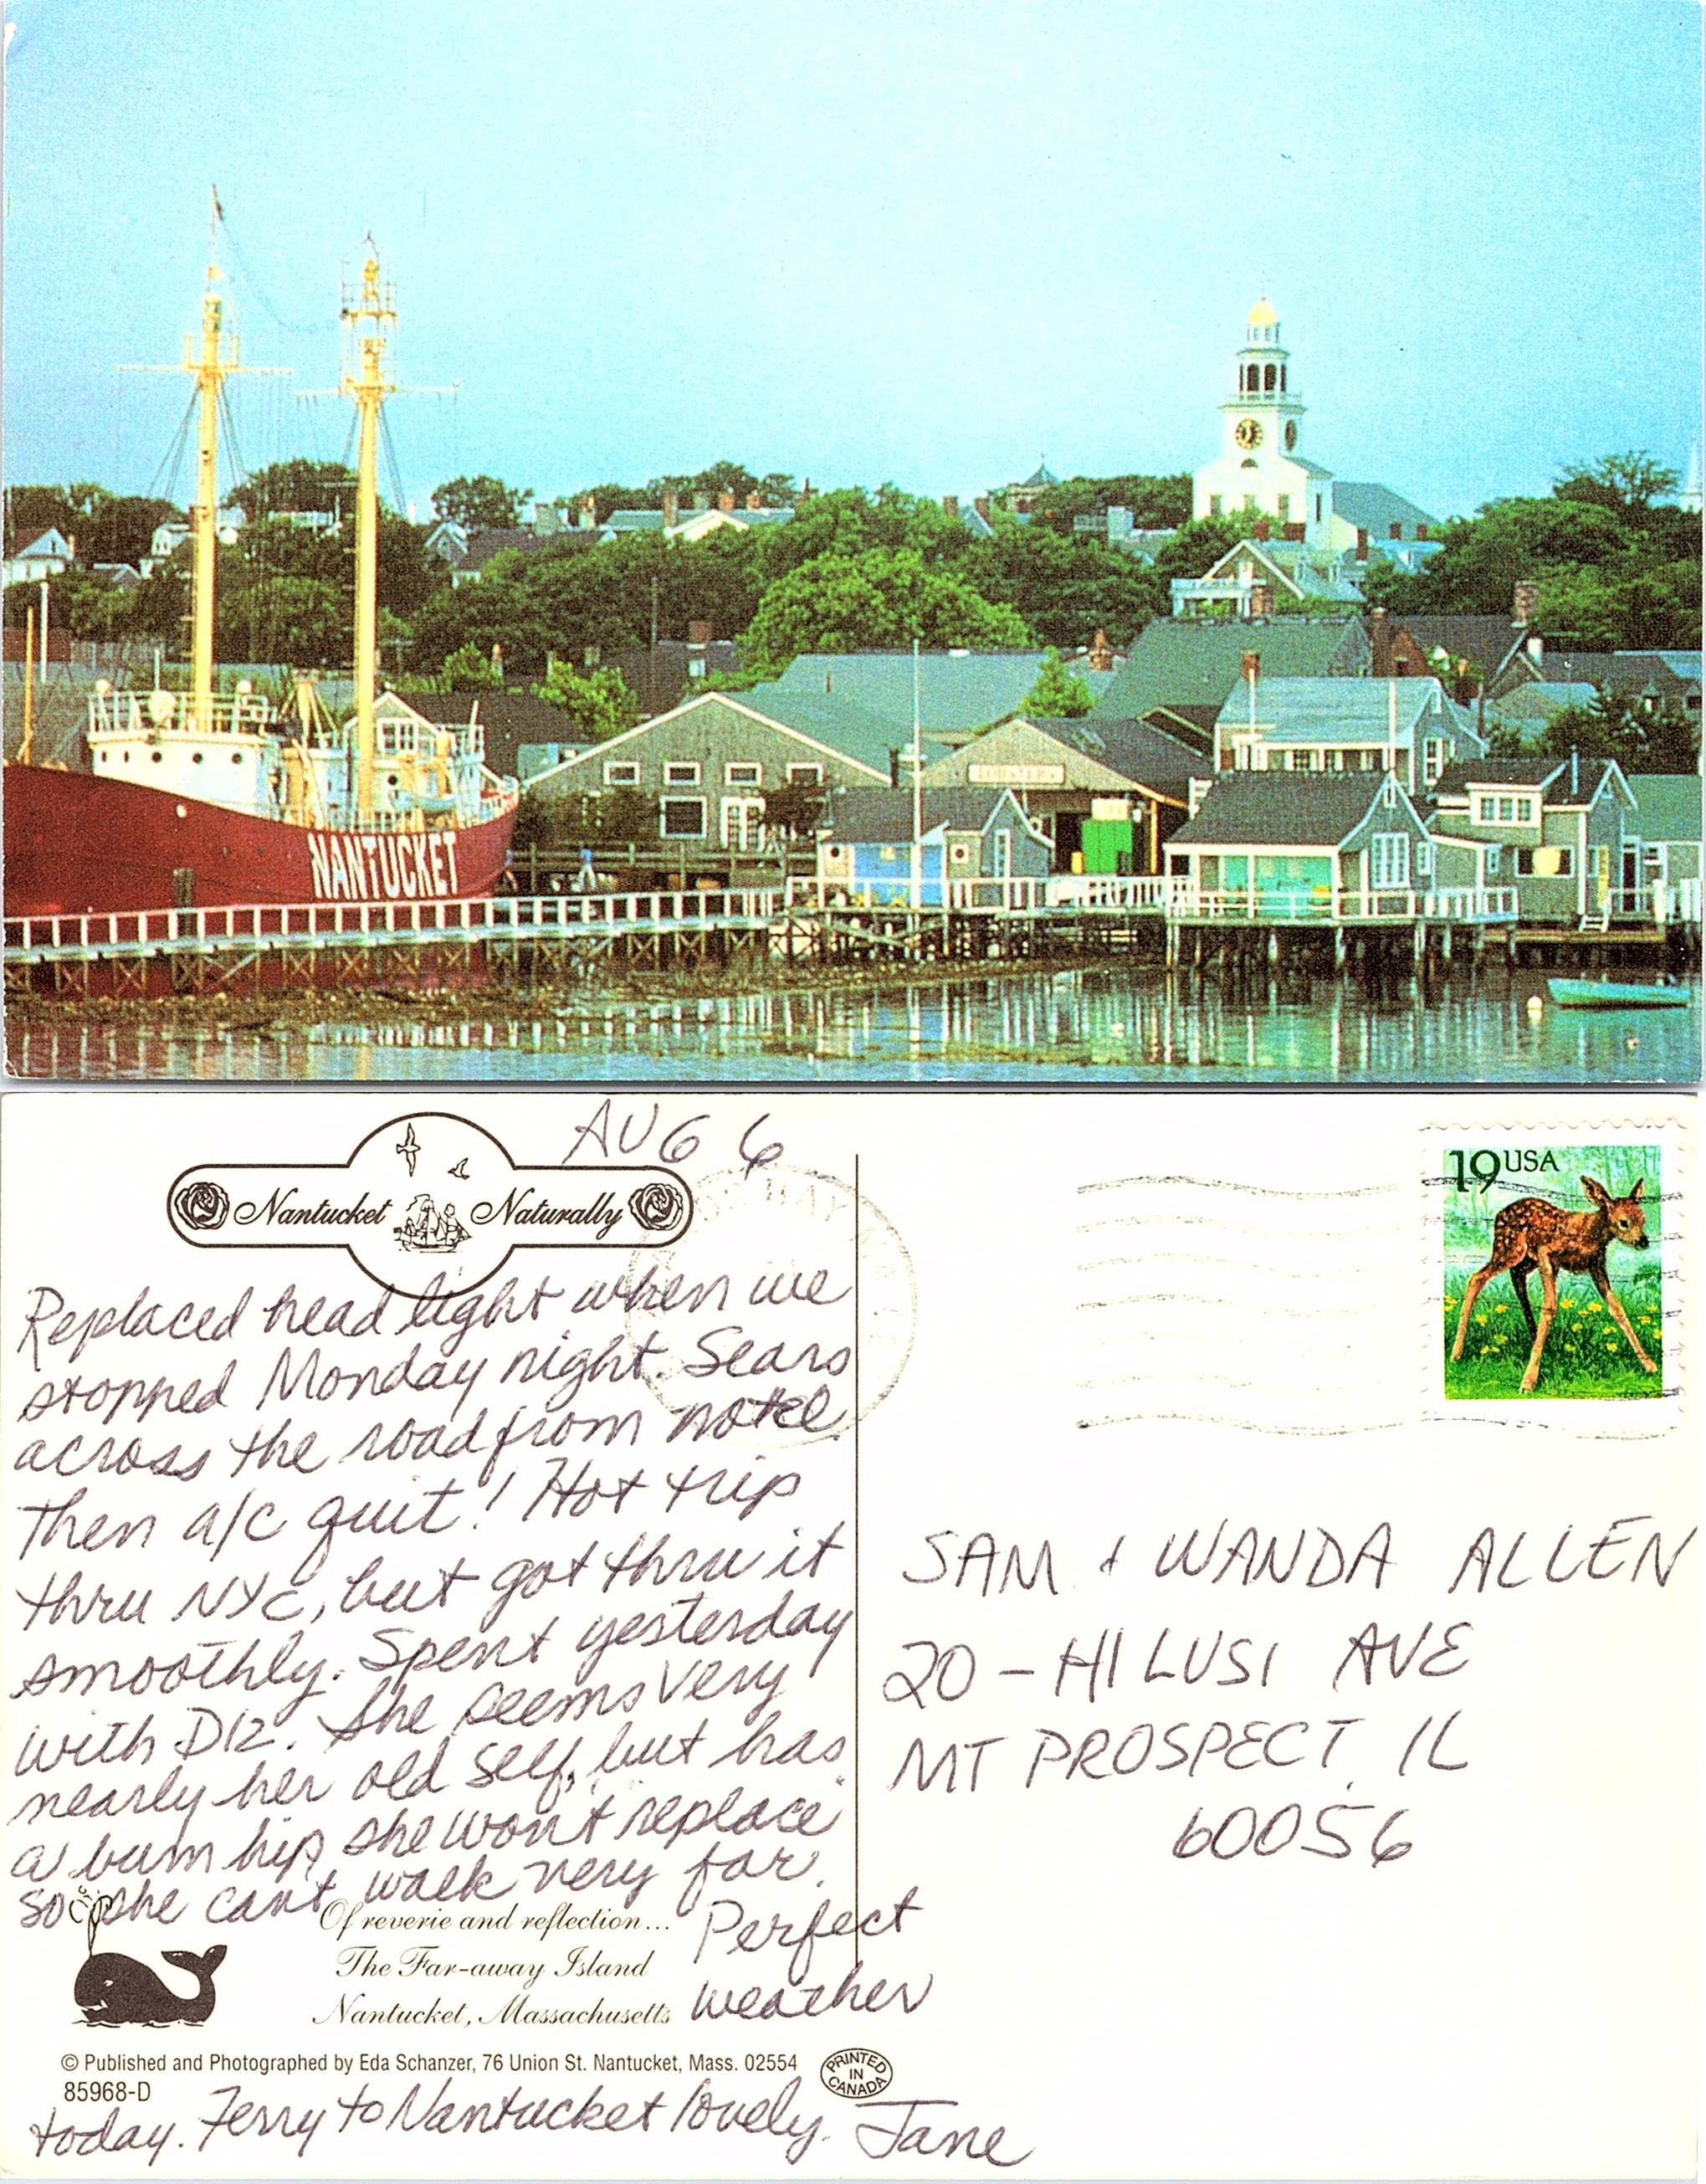 LOBSTERS
NANTUCKET
AUG 6
Nantucket Naturally
19 USA
Replaced head light when we
stopped Monday night. Sears
across the road from motel.
Then a/c quit! Hot trip
thru NYC, but got thru it
smoothly. Spent yesterday
with Diz. She seems very
nearly her old self, but has
a bum hip she won't replace
so she can't walk very far.
Perfect
weather
today. Ferry to Nantucket lovely. Jane
SAM + WANDA ALLEN
20 - HI LUSI AVE
MT PROSPECT, IL
60056
Of reverie and reflection...
The Far-away Island
Nantucket, Massachusetts
© Published and Photographed by Eda Schanzer, 76 Union St. Nantucket, Mass. 02554
85968-D
PRINTED
IN
CANADA